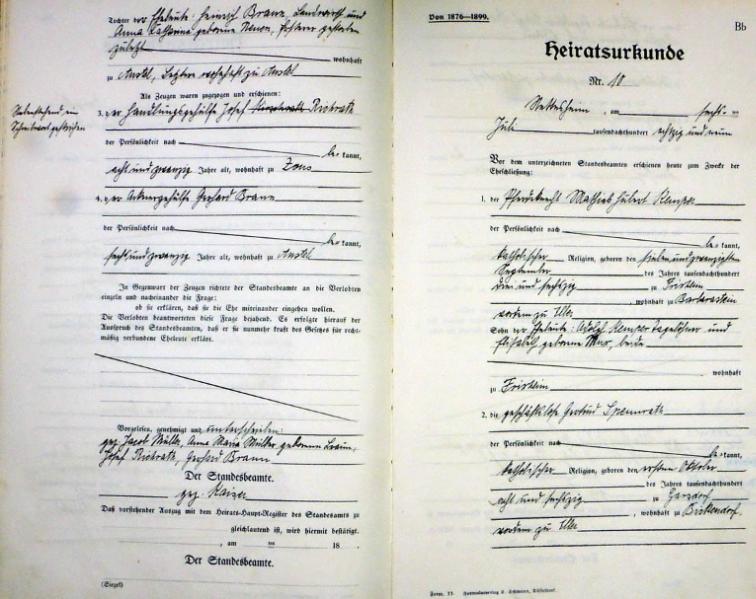 Tochter der Eheleute: Heinrich Braun, Landwirth und
Anna Katharina geborene
zuletzt wohnhaft
zu Anstel, Letztere wohnhaft zu Anstel
Als Zeugen waren zugezogen und erschienen:
3. der Handlungsgehülfe Josef Richrath
der Persönlichkeit nach
be kannt,
acht und zwanzig Jahre alt, wohnhaft zu Zons
4. der Ackergehülfe Gerhard Braun
der Persönlichkeit nach
be kannt,
sechs und zwanzig Jahre alt, wohnhaft zu Anstel
In Gegenwart der Zeugen richtete der Standesbeamte an die Verlobten
einzeln und nacheinander die Frage:
ob sie erklären, daß sie die Ehe miteinander eingehen wollen.
Die Verlobten beantworteten diese Frage bejahend. Es erfolgte hierauf der
Ausspruch des Standesbeamten, daß er sie nunmehr kraft des Gesetzes für recht-
mäßig verbundene Eheleute erkläre.
Vorgelesen, genehmigt und unterschrieben:
gez. Jacob Müller, Anna Maria Müller geborene Braun,
Josef Richrath, Gerhard Braun
Der Standesbeamte.
gez. Kaiser
Daß vorstehender Auszug mit dem Heirats-Haupt-Register des Standesamts zu
gleichlautend ist, wird hiermit bestätigt.
, am ten 18
Der Standesbeamte.
(Siegel)
Von 1876-1899.
Bb
Heiratsurkunde
Nr. 10
Nettesheim, am sechs
Juli tausendachthundert achtzig und neun
Vor dem unterzeichneten Standesbeamten erschienen heute zum Zwecke der
Eheschließung:
1. der Pferdeknecht Mathias Hubert Kemper
der Persönlichkeit nach
be kannt,
katholischer Religion, geboren den sieben und zwanzigsten
September des Jahres tausendachthundert
drei und sechzig zu Frixheim
, wohnhaft zu
Sohn der Eheleute: Adolf Kemper Tagelöhner und
geborene beide
wohnhaft
zu Frixheim
2. die geschäftslose Gertrud Spennrath
der Persönlichkeit nach
be kannt,
katholischer Religion, geboren den ersten Oktober
des Jahres tausendachthundert
acht und sechzig zu Garsdorf
, wohnhaft zu Butzendorf